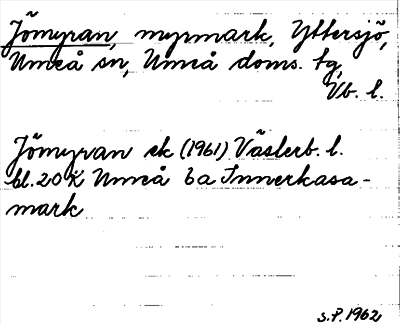 Jömyran, myrmark, Yttersjö,
Umeå sn, Umeå doms. tg,
Vb. l.
Jömyran ek (1961) Västerb. l.
bl. 20 K Umeå 6 a Innerkasa-
mark
S.P. 1962